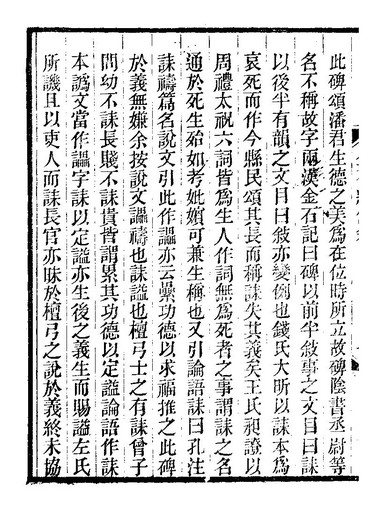 此碑頌潘君生德之美爲在位時所立故碑陰書丞尉等
名不稱故字兩漢金石記曰碑以前半敘事之文目曰誄
以後半有韻之文目曰敘亦變例也錢氏大昕以誄本爲
哀死而作今縣民頌其長而稱誄失其義矣王氏昶證以
周禮太祝六詞皆爲生人作詞無爲死者之事謂誄之名
通於死生殆如考妣嬪可兼生稱也又引論語誄曰孔注
誄禱篇名說文引此作讄亦云纍功德以求福推之此碑
於義無嫌余按說文讄禱也誄謚也檀弓士之有誄曾子
問幼不誄長賤不誄貴皆謂累其功德以定謚論語作誄
本譌文當作讄字誄以定謚亦生後之義生而賜謚左氏
所譏且以吏人而誄長官亦昧於檀弓之說於義終未協